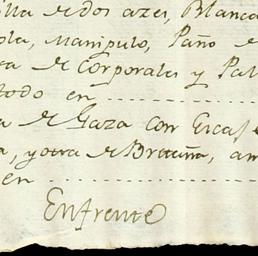 illa de dos azes, Blanca
ola, Manipulo, Paño de
sa de Corporales y Pal
todo en
a de Gaza con Encaj
a, y otra de Bretaña, am
en
Enfrente